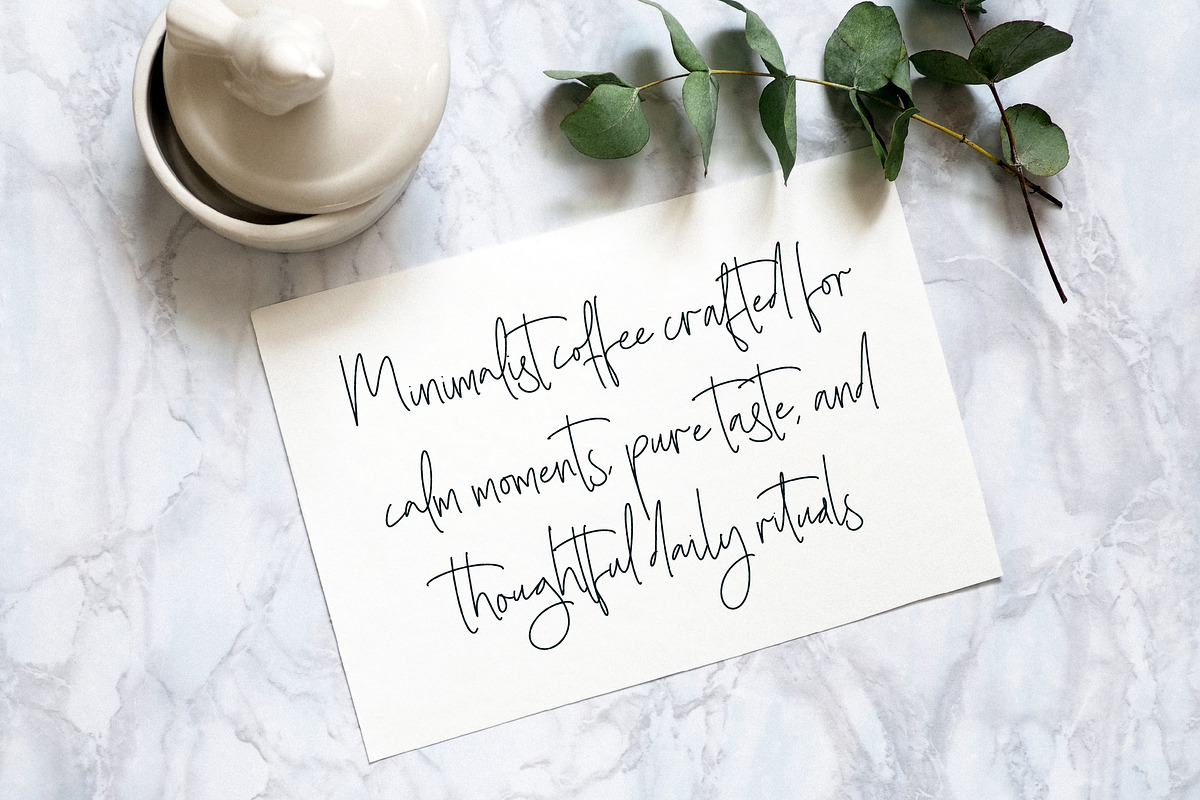 Minimalist coffee crafted for
calm moments, pure taste, and
thoughtful daily rituals